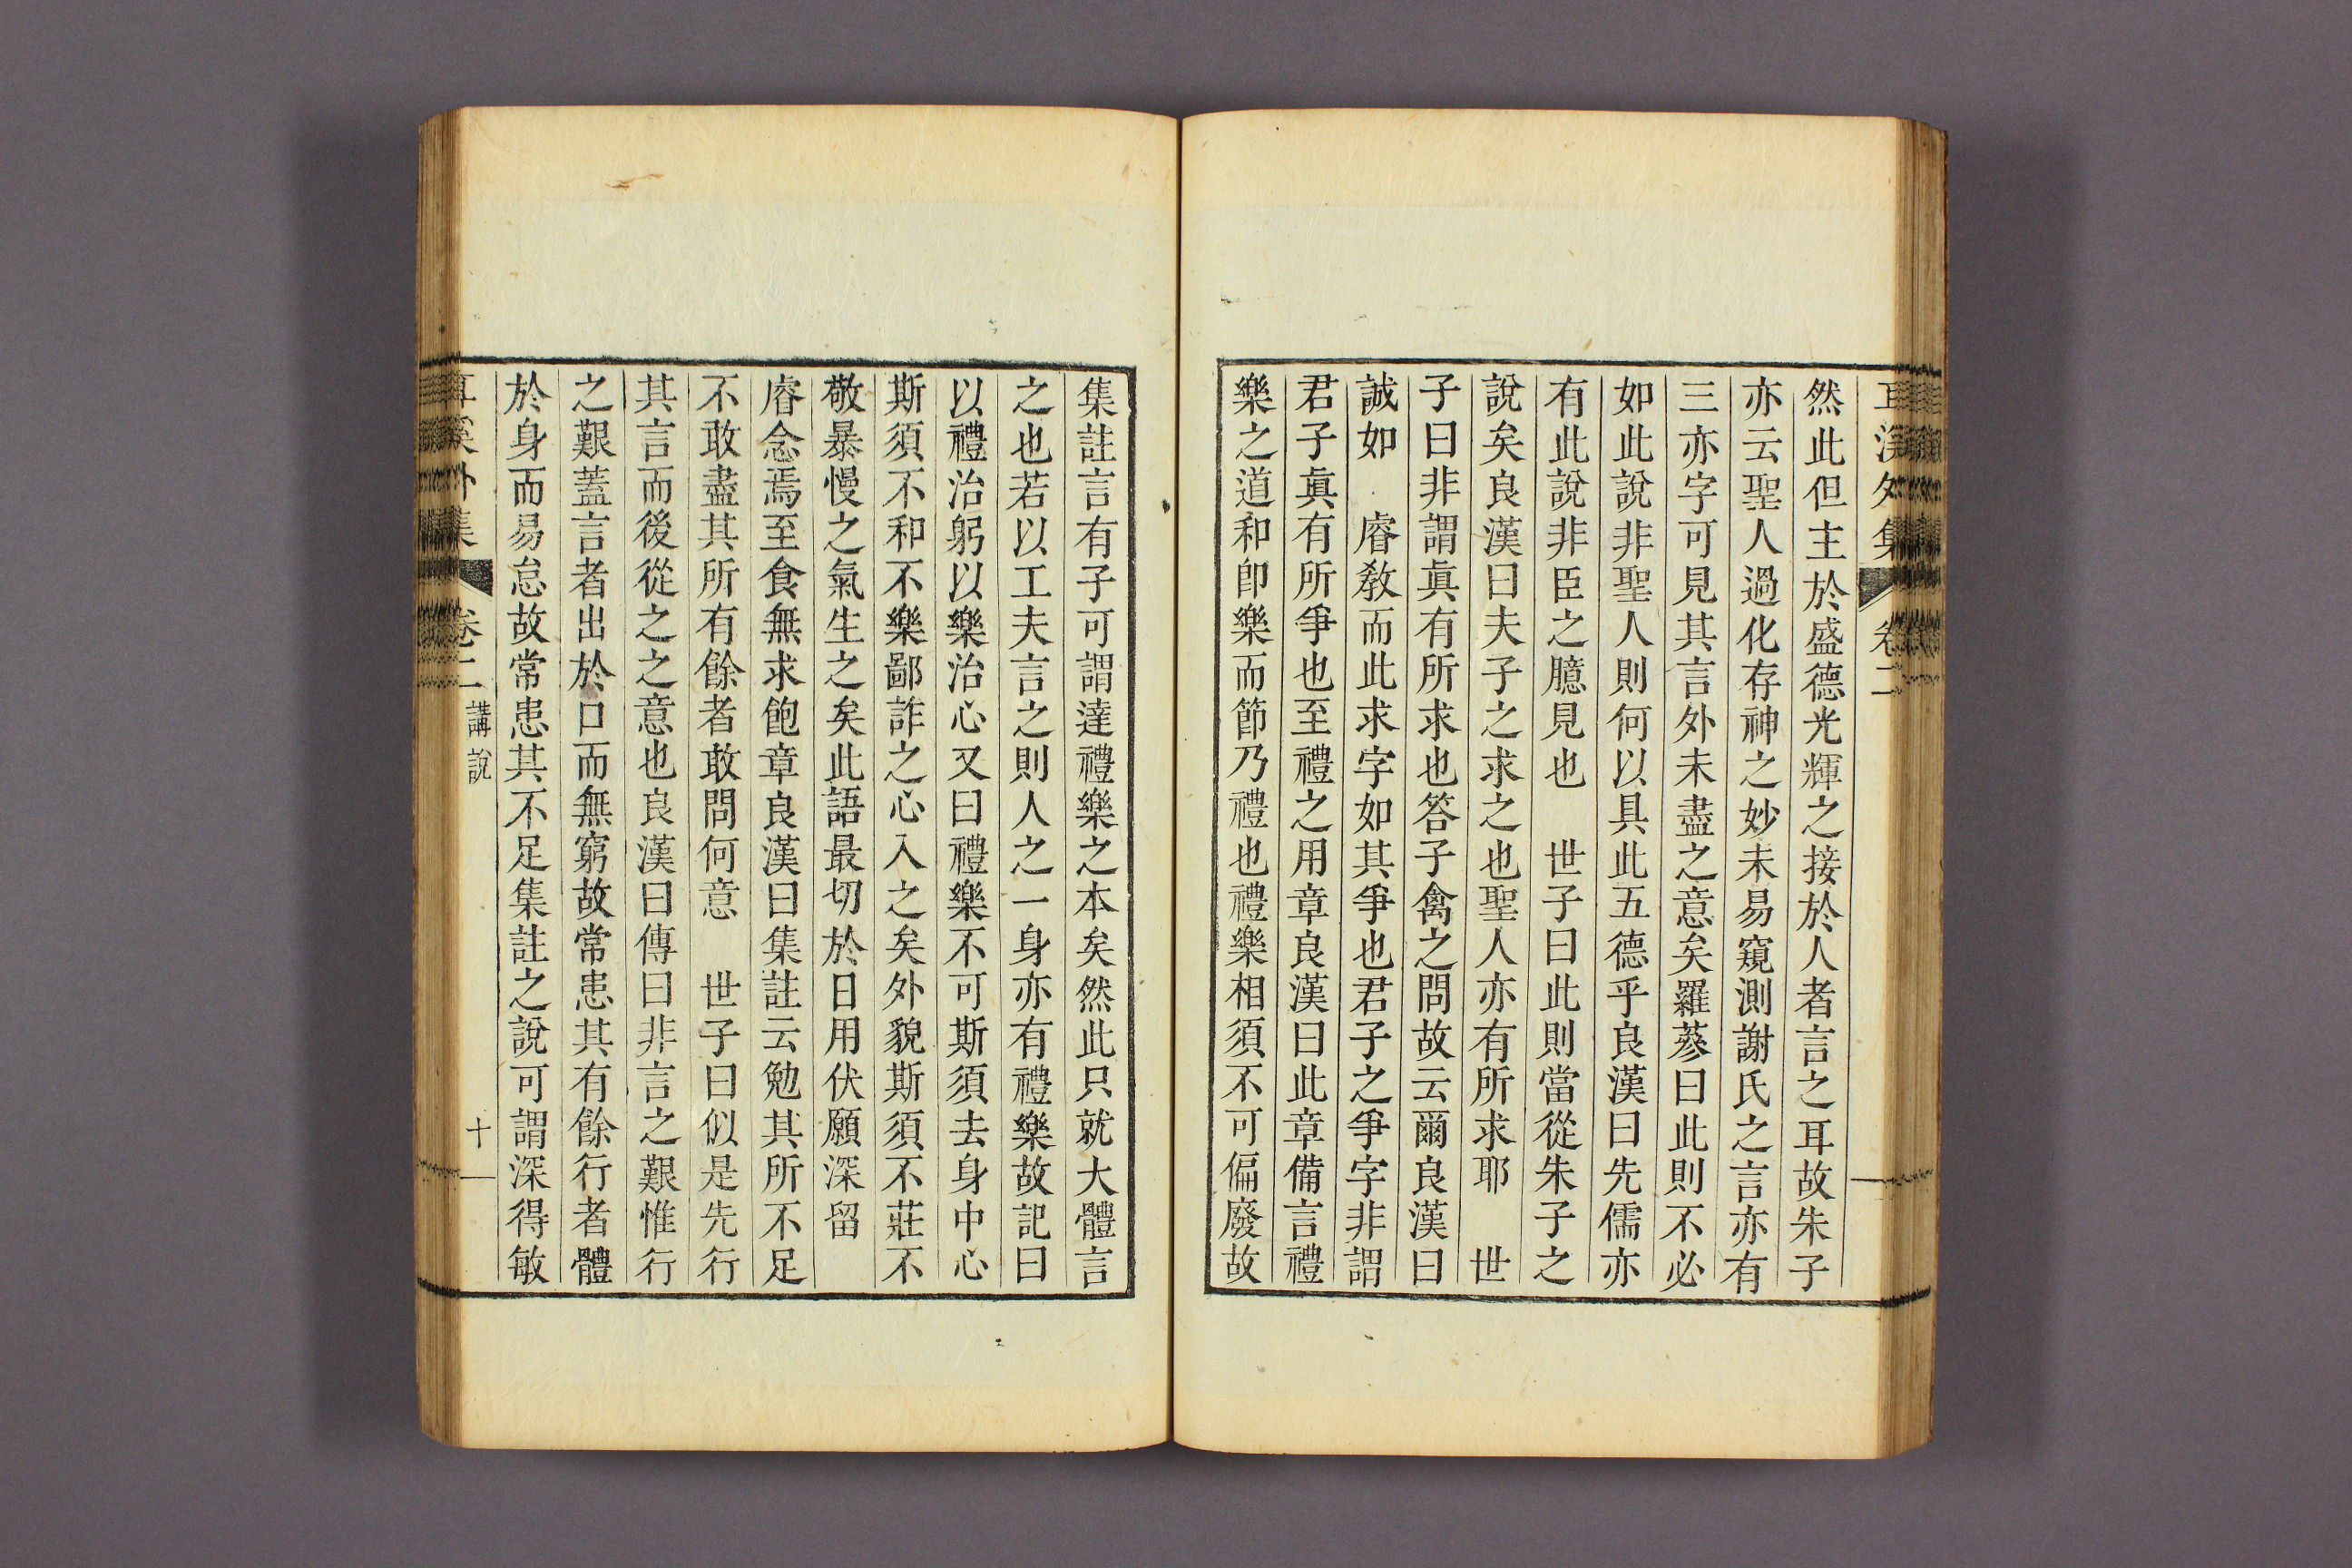 耳溪外集 卷二
然此但主於盛德光輝之接於人者言之耳故朱子
亦云聖人過化存神之妙未易窺測謝氏之言亦有
三亦字可見其言外未盡之意矣羅蔘曰此則不必
如此說非聖人則何以具此五德乎良漢曰先儒亦
有此說非臣之臆見也 世子曰此則當從朱子之
說矣良漢曰夫子之求之也聖人亦有所求耶 世
子曰非謂眞有所求也答子禽之問故云爾良漢曰
誠如 睿敎而此求字如其爭也君子之爭字非謂
君子眞有所爭也至禮之用章良漢曰此章備言禮
樂之道和卽樂而節乃禮也禮樂相須不可偏廢故
集註言有子可謂達禮樂之本矣然此只就大體言
之也若以工夫言之則人之一身亦有禮樂故記曰
以禮治躬以樂治心又曰禮樂不可斯須去身中心
斯須不和不樂鄙詐之心入之矣外貌斯須不莊不
敬暴慢之氣生之矣此語最切於日用伏願深留
睿念焉至食無求飽章良漢曰集註云勉其所不足
不敢盡其所有餘者敢問何意 世子曰似是先行
其言而後從之之意也良漢曰傳曰非言之艱惟行
之艱蓋言者出於口而無窮故常患其有餘行者體
於身而易怠故常患其不足集註之說可謂深得敏
耳溪外集 卷二 講說 十